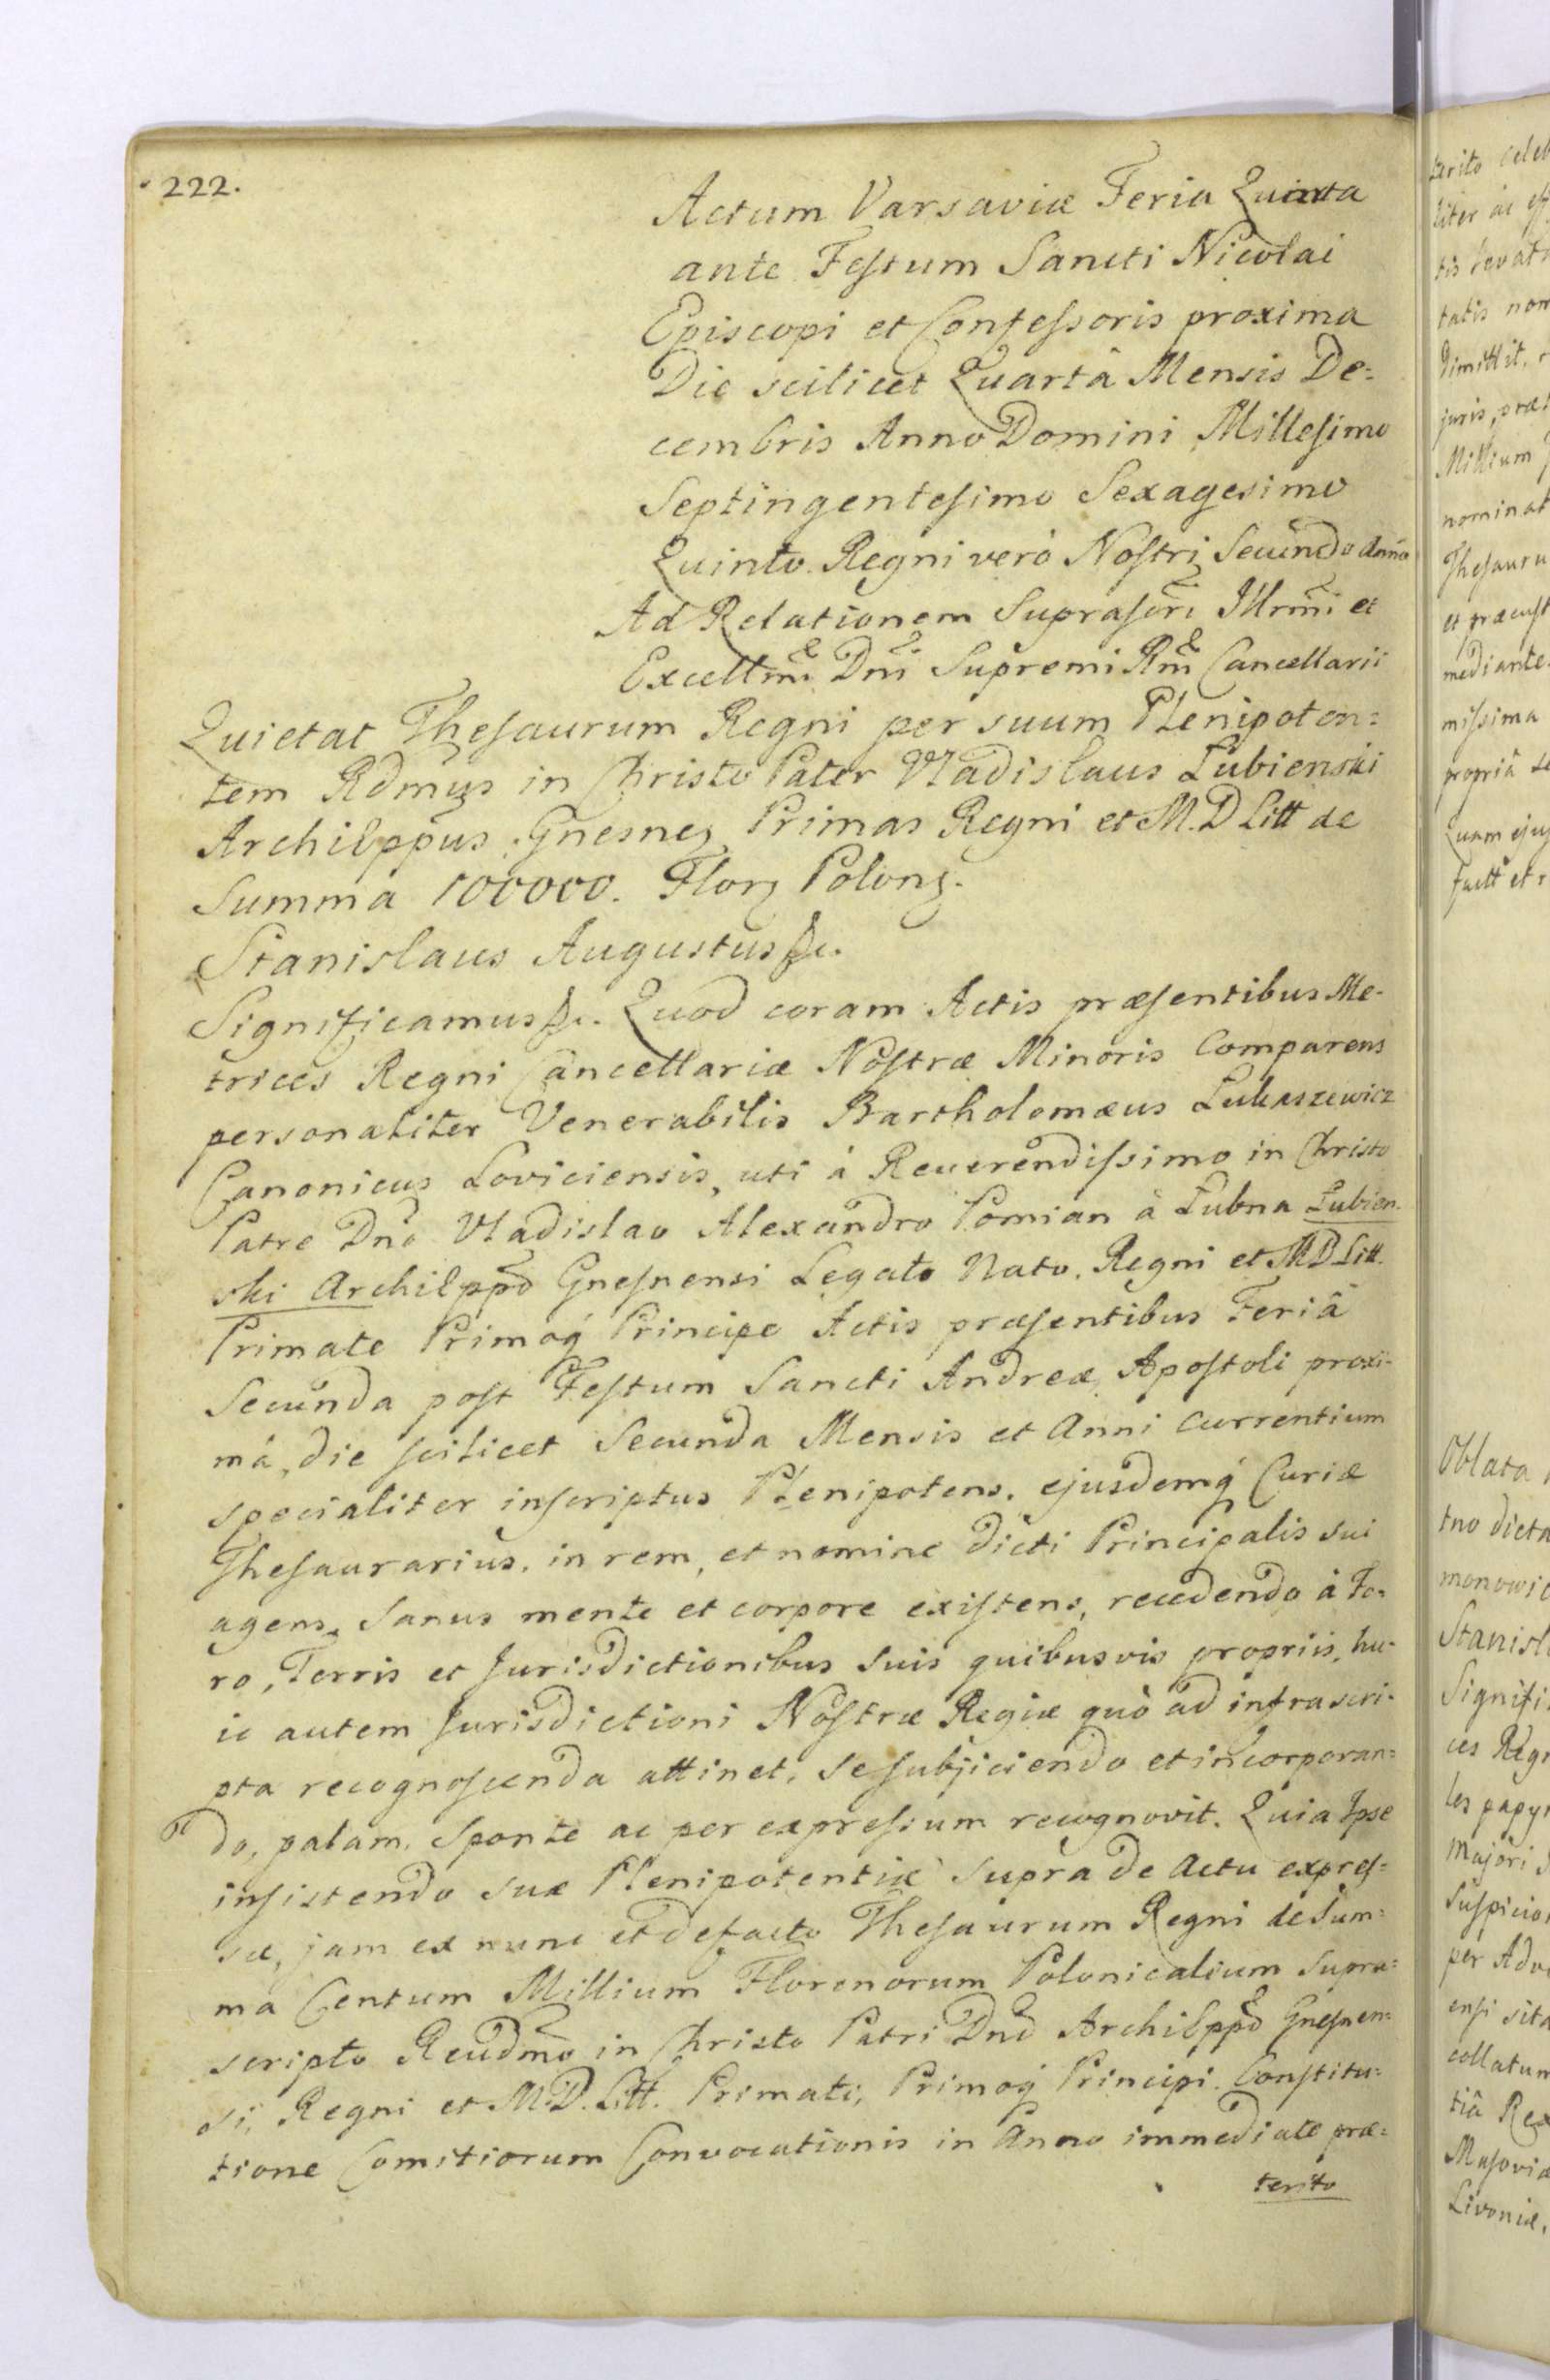 222.
Actum Varsaviæ Feria Quinta
ante Festum Sancti Nicolai
Episcopi et Confessoris proxima
Die scilicet Quartâ Mensis De=
cembris Anno Domini Millesimo
Septingentesimo Sexagesimo
Quinto. Regni verò Nostri Secundo Anno
Ad Relationem Suprascri Illrmi et
Excellmi Dni Supremi Rni Cancellarii
Quietat Thesaurum Regni per suum Plenipoten=
tem Rdmus in Christo Pater Vladislaus Łubienski
Archieppus Gnesnes Primas Regni et M.D Litt de
Summa 100000. Flor Polon.
Stanislaus Augustus &c.
Significamus &c. Quod coram Actis præsentibus Me-
trices Regni Cancellariæ Nostræ Minoris Comparens
personaliter Venerabilis Bartholomæus Łukaszewicz
Canonicus Loviciensis, uti à Reverendissimo in Christo
Patre Dno Vladislao Alexandro Pomian à Łubna Łubien-
ski Archieppo Gnesnensi Legato Nato. Regni et M D Litt.
Primate Primoq́ Principe Actis præsentibus Feriâ
Secunda post Festum Sancti Andreæ Apostoli proxi-
mâ, die scilicet Secunda Mensis et Anni currentium
specialiter inscriptus Plenipotens. ejusdemq́ Curiæ
Thesaurarius. in rem, et nomine dicti Principalis sui
agens, Sanus mente et corpore existens, recedendo à Fo-
ro, Terris et Jurisdictionibus suis quibusvis propriis, hu-
ic autem Jurisdictioni Nostræ Regiæ quò ad infrascri-
pta recognoscenda attinet, se subjiciendo et incorporan=
do, palam. Sponte ac per expressum recognovit. Quia Ipse
insistendo suæ Plenipotentiæ supra de Actu expres=
sæ, jam ex nunc et de facto Thesaurum Regni de Sum=
ma Centum Millium Florenorum Polonicalium Supra=
scripto Reudmo in Christo Patri Dno Archieppo Gnesnen=
si, Regni et M.D. Litt. Primati, Primoq́ Principi. Constitu=
tione Comitiorum Convocationis in Anno immediate præ=
terito
terito celeb
liter ac ef
tis levat
tatis non
dimittit.
juris, præ
Millium
nominat
Thesauru
et præcust
mediante
missima
propriâ
Quam ejus
factt et r
Oblata
tno dicta
monowic
Stanisl
Signifi
ces Regn
les papyr
Majori
suspicio
per Adv
ensi sita
collatum
tiâ Rex
Masoviæ
Livoniæ,